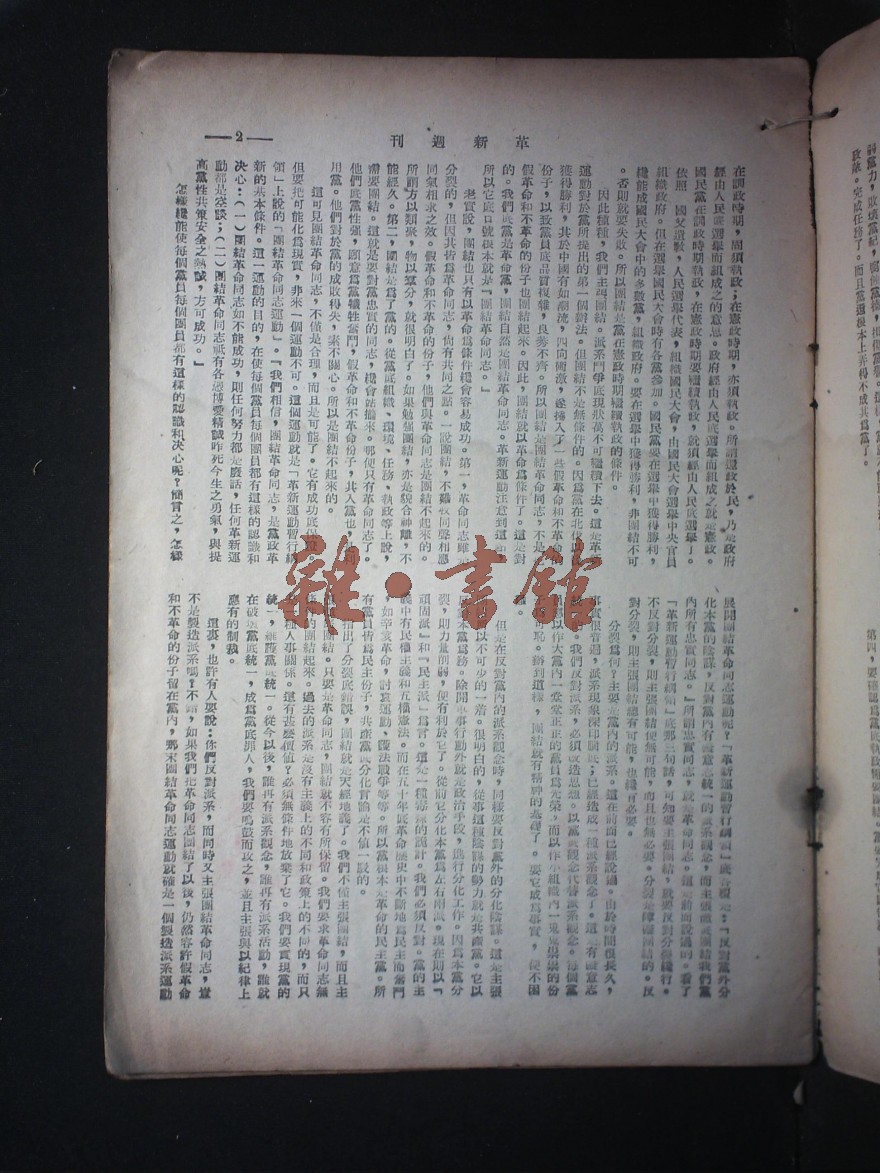 革新週刊
—2—
在訓政時期,固須執政;在憲政時期,亦須執政。所謂還政於民,乃是政府
經由人民底選舉而組成之的意思。政府經由人民底選舉而組成之就是憲政。
國民黨在訓政時期執政,在憲政時期要繼續執政,就須經由人民底選舉了。
依照 國父遺敎,人民選舉代表,組織國民大會,由國民大會選舉中央官員
組織政府。但在選舉國民大會時有各黨參加。國民黨要在選舉中獲得勝利,
纔能成國民大會中的多數黨,組織政府。要在選舉中獲得勝利,非團結不可
。否則就要失敗。所以團結是黨在憲政時期繼續執政的條件。
因此種種,我們主張團結。派系鬥爭底現狀萬不可繼續下去。這是革新
運動對於黨所提出的第一個辦法。但團結不是無條件的。因爲黨在北伐
獲得勝利,其於中國有如潮流,四向衝激,遂捲入了一些假革命和不革命的
份子,以致黨員底品質複雜,良莠不齊。所以團結是團結革命同志,不是
假革命和不革命的份子也團結起來。因此,團結就以革命爲條件了。這是對
的。我們底黨是革命黨,團結自然是團結革命同志。革新運動注意到這
所以它底口號根本就是『團結革命同志。』
老實說,團結也只有以革命爲條件纔會容易成功。第一,革命同志雖
分裂的,但因其皆爲革命同志,尙有共同之點。一說團結,不難收同聲相應
同氣相求之效。假革命和不革命的份子,他們與革命同志是團結不起來的。
所謂方以類聚,物以羣分,就很明白了。如果勉強團結,亦是貌合神離,不
能經久。第二,團結是爲了黨的。從黨底組織、環境、任務、執政等上說,
需要團結。這就是要對黨忠實的同志,纔會結攏來。那便只有革命同志了。
他們底黨性強,願意爲黨犧牲奮鬥,假革命和不革命份子,其入黨也,
用黨。他們對於黨的成敗得失,素不關心。所以是團結不起來的。
這可見團結革命同志,不僅是合理,而且是可能了。它有成功底
但要把可能化爲現實,非來一個運動不可。這個運動就是『革新運動暫行綱
領』上說的『團結革命同志運動』。『我們相信,團結革命同志,是黨政革
新的基本條件。這一運動的目的,在使每個黨員每個團員都有這樣的認識和
決心:(一)團結革命同志如不能成功,則任何努力都是廢話,任何革新運
動都是空談;(二)團結革命同志祇有各過博愛精誠昨死今生之勇氣,與提
高黨性共策安全之熱誠,方可成功。』
怎樣纔能使每個黨員每個團員都有這樣的認識和決心呢?簡言之,怎樣
展開團結革命同志運動呢?『革新運動暫行綱領』底答覆是:『反對黨外分
化本黨的陰謀,反對黨內有礙意志統一的派系觀念,而主張徹底團結我們黨
內所有忠實同志。』所謂忠實同志,就是革命同志。這是前面說過的。看了
『革新運動暫行綱領』底那三句話,可知要主張團結,就要反對分裂纔行。
不反對分裂,則主張團結便無可能,而且也無必要。分裂是障礙團結的。反
對分裂,則主張團結纔有可能,也纔有必要。
分裂爲何?主要是黨內的派系。這在前面已經說過。由於時間很長久,
很普遍,派系現象深印腦底;已經造成一種派系觀念了。這是有礙意志
我們反對派系,必須改造思想。以黨底觀念代替派系觀念。每個黨
以作大黨內一堂堂正正的黨員爲光榮,而以作小組織內一鬼鬼祟祟的份
恥。辦到這樣,團結就有精神的基礎了。要它成爲事實,便不困
但是在反對黨內的派系觀念時,同樣要反對黨外的分化陰謀。這是主張
以不可少的一着。很明白的,從事這種陰謀的勢力就是共產黨。它以
本黨爲務。除開軍事行動外就是政治手段,進行分化工作。因爲本黨分
裂,則力量削弱,便有利於它了。從前它分化本黨爲左右兩派。現在則以『
頑固派』和『民主派』爲言。這是一種毒辣的詭計。我們必須反對。黨的主
義中有民權主義和五權憲法。而在五十年底革命歷史中不斷地爲民主而奮鬥
,如辛亥革命,討袁運動、護法戰爭等等。所以黨根本是革命的民主黨。所
有黨員皆爲民主份子,共產黨底分化言論是不值一駁的。
指出了分裂底錯誤,團結就是天經地義了。我們不僅主張團結,而且主
團結。只要是革命同志,團結就不容有所保留。我們要求革命同志無
的團結起來。過去的派系是沒有主義上的不同和政策上的不同的,而只
種人事關係。還有甚麼價值?必須無條件地放棄了它。我們要實現黨的
統一,維護黨底統一。從今以後,誰再有派系觀念,誰再有派系活動,誰就
在破壞黨底統一,成爲黨底罪人,我們要鳴鼓而攻之,並且主張與以紀律上
應有的制裁。
這裏,也許有人要說:你們反對派系,而同時又主張團結革命同志,豈
不是製造派系嗎?不錯,如果我們把革命同志團結了以後,仍然容許假革命
和不革命的份子留在黨內,那末團結革命同志運動就確是一個製造派系運動
雜·書館
政敵。完成任務了。而且黨還根本上弄得不成其爲黨了。
第四,要確認爲黨底